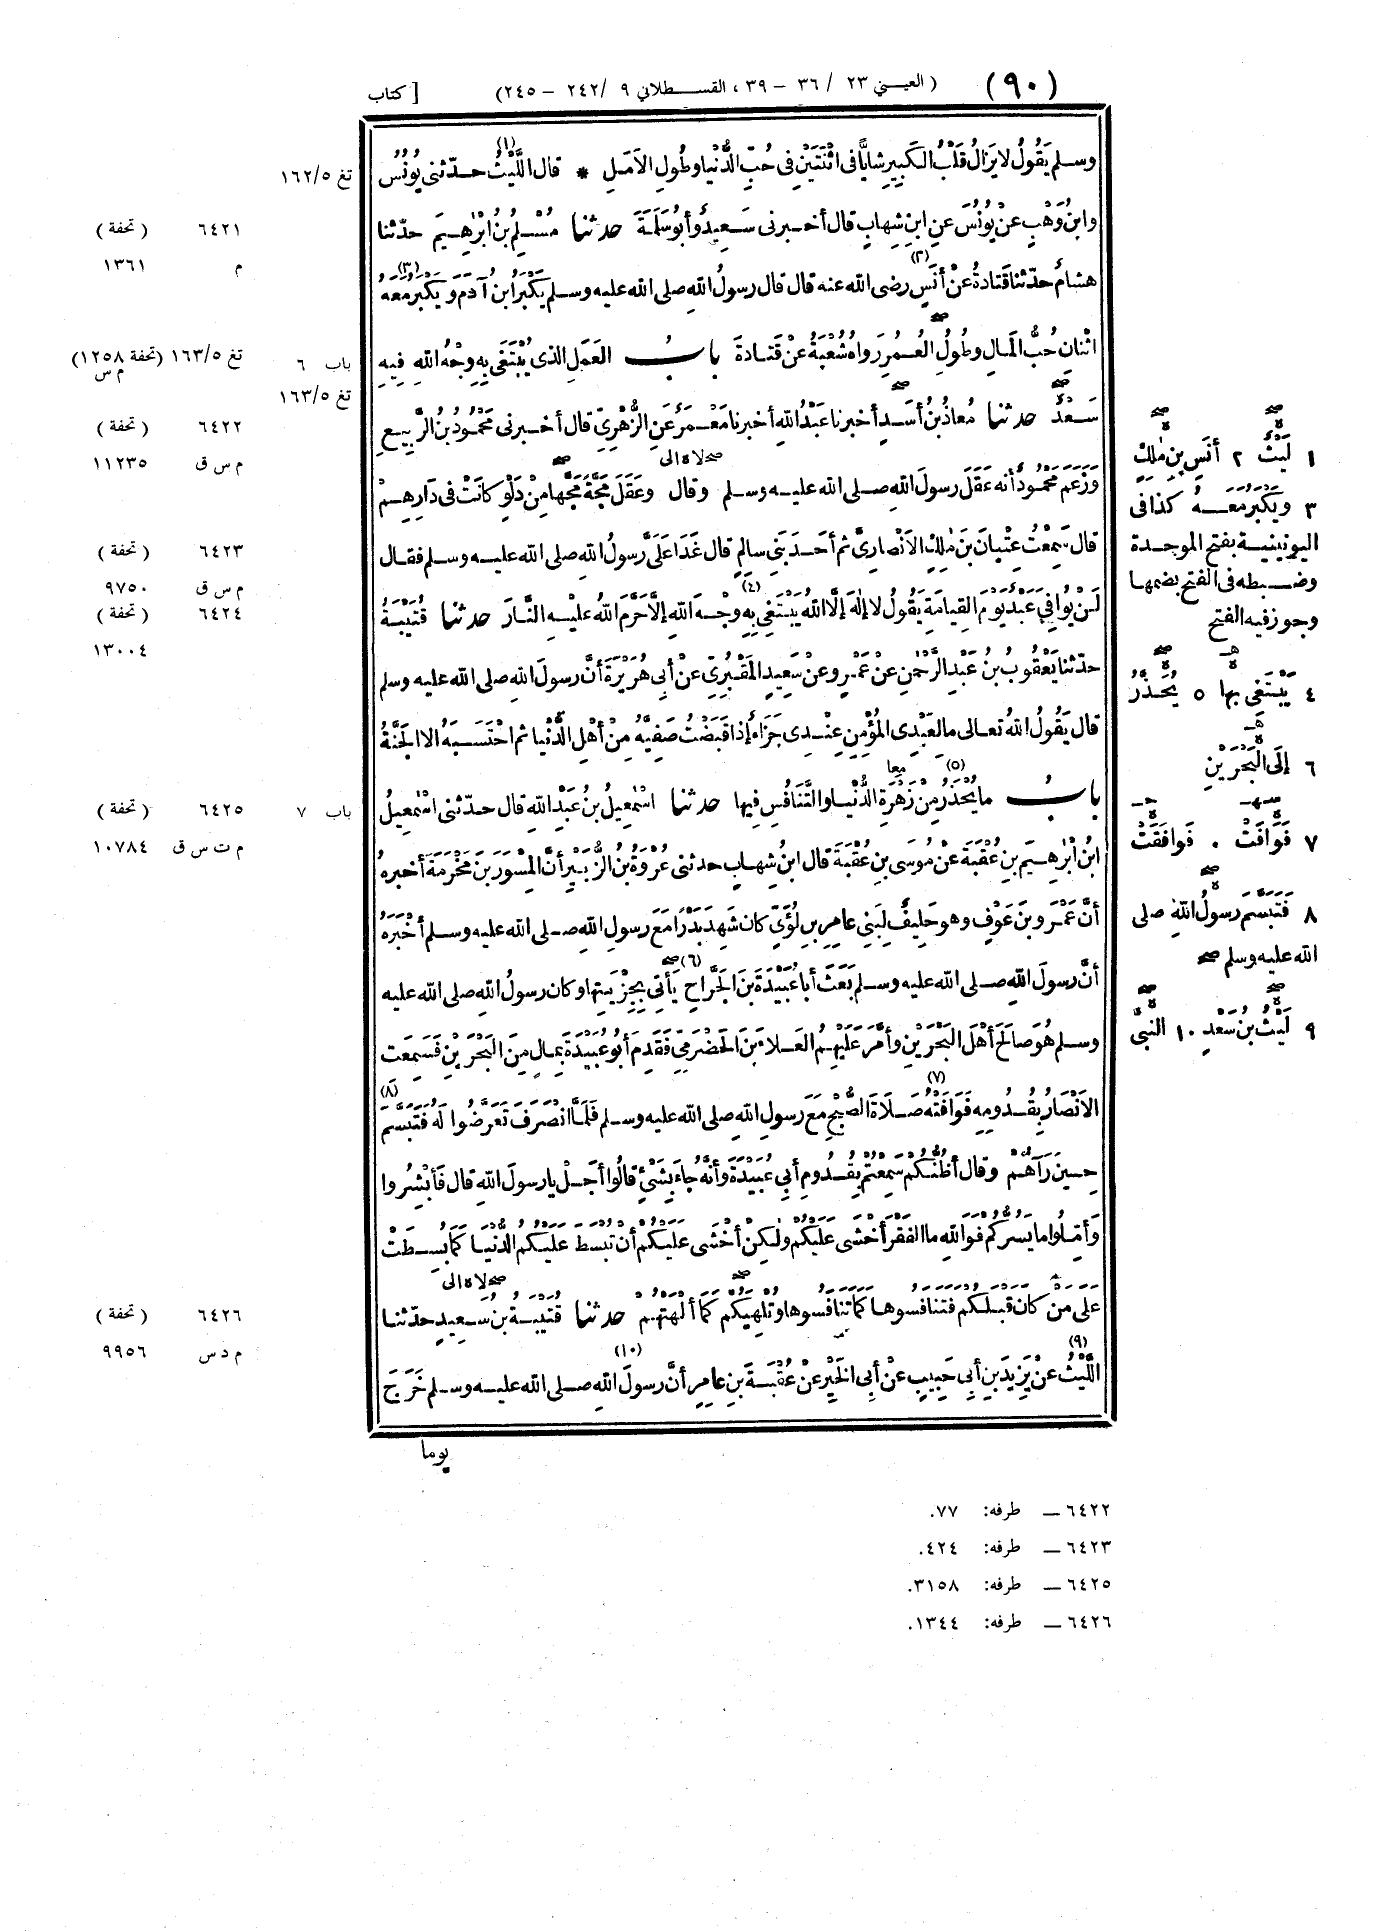 (٩٠) (العيني ٢٣ / ٣٦ - ٣٩ ، القسطلاني ٩ / ٢٤٢ - ٢٤٥) [ كتاب
وسلم يَقُولُ لا يَزَالُ قَلْبُ الكَبِيرِ شابًّا فى اثْنَتَيْنِ فى حُبِّ الدُّنْيا وطُولِ الاَمَلِ * قال اللَّيْثُ (١) حدّثنى يُونُسُ
تغ ١٦٢/٥
وابنُ وَهْبٍ عنْ يُونُسَ عنِ ابنِ شِهابٍ قال أخبرنى سَعِيدٌ وأبُو سَلَمَةَ حدثنا مُسْلِمُ بنُ ابْرٰهِيمَ حدّثنا
٦٤٢١ (تحفة)
م ١٣٦١
هشامٌ حدّثنا قَتادةُ عنْ أنَسٍ (٢) رضى الله عنه قال قال رسولُ اللهِ صلى الله عليه وسلم يَكْبَرُ ابنُ آدَمَ وَيَكْبَرُ مَعَهُ (٣)
اثْنانِ حُبُّ المالِ وطُولُ العُمُرِ رواه شُعْبَةُ عنْ قَتادةَ بابُ العَمَلِ الذى يُبْتَغَى بِهِ وجْهُ اللهِ فِيهِ
باب ٦ تغ ١٦٣/٥ (تحفة ١٢٥٨)
م س
تغ ١٦٣/٥
سَعْدٌ حدثنا مُعاذُ بنُ أسَدٍ أخبرنا عَبْدُ اللهِ أخبرنا مَعْمَرٌ عَنِ الزُّهْرِيِّ قال أخبرنى مَحْمُودُ بنُ الرَّبِيعِ
٦٤٢٢ (تحفة)
م س ق ١١٢٣٥
وَزَعَمَ مَحْمُودٌ أنه عَقَلَ رسولَ اللهِ صلى الله عليه وسلم وقال وعَقَلَ مَجَّةً مَجَّها مِنْ دَلْوٍ كانَتْ فى دَارِهِمْ
قال سَمِعْتُ عِتْبانَ بنَ مٰلِكٍ الاَنْصارِيَّ ثم أحَدَ بَنِي سالِمٍ قال غَدَا عَلَيَّ رسولُ اللهِ صلى الله عليه وسلم فقال
٦٤٢٣ (تحفة)
م س ق ٩٧٥٠
لَنْ يُوافِيَ عَبْدٌ يَوْمَ القِيامَةِ يَقُولُ لا إلٰهَ إلَّا اللهُ يَبْتَغِي بِهِ (٤) وجْهَ اللهِ إلَّا حَرَّمَ اللهُ عليْهِ النَّارَ حدثنا قُتَيْبَةُ
٦٤٢٤ (تحفة)
١٣٠٠٤
حدّثنا يَعْقُوبُ بنُ عَبْدِ الرَّحْمٰنِ عنْ عَمْرٍو عنْ سَعِيدٍ المَقْبُرِيِّ عنْ أبى هُرَيْرَةَ أنَّ رسولَ اللهِ صلى الله عليه وسلم
قال يَقُولُ اللهُ تعالى مالعَبْدِى المُؤْمِنِ عنْدِى جَزَاءٌ إذا قَبَضْتُ صَفِيَّهُ مِنْ أهْلِ الدُّنْيا ثم احْتَسَبَهُ الا الجَنَّةُ
بابُ ما يُحْذَرُ (٥) مِنْ زَهْرَةِ الدُّنْيا والتَّنَافُسِ فِيها حدثنا اسْمٰعِيلُ بنُ عَبْدِ اللهِ قال حدّثنى اسْمٰعِيلُ
باب ٧ ٦٤٢٥ (تحفة)
م ت س ق ١٠٧٨٤
ابنُ ابْرٰهِيمَ بنِ عُقْبَةَ عنْ مُوسَى بنِ عُقْبَةَ قال ابنُ شِهابٍ حدثنى عُرْوَةُ بنُ الزُّبَيْرِ أنَّ المِسْوَرَ بنَ مَخْرَمَةَ أخبره
أنَّ عَمْرَو بنَ عَوْفٍ وهو حَلِيفٌ لِبَنِي عامِرِ بنِ لُؤَيٍّ كان شَهِدَ بَدْرًا مَعَ رسولِ اللهِ صلى الله عليه وسلم أخْبَرَهُ
أنَّ رسولَ اللهِ صلى الله عليه وسلم بَعَثَ أبا عُبَيْدَةَ بنَ الجَرَّاحِ (٦) يأتى بِجِزْيَتِها وكان رسولُ اللهِ صلى الله عليه
وسلم هُوَ صالَحَ أهْلَ البَحْرَيْنِ وأمَّرَ عَلَيْهِمُ العَلاءَ بنَ الحَضْرَمِيِّ فقَدِمَ أبُو عُبَيْدَةَ بمالٍ مِنَ البَحْرَيْنِ فَسَمِعَتِ
الاَنْصَارُ بِقُدُومِهِ فَوَافَتْهُ (٧) صَلَاةَ الصُّبْحِ مَعَ رسولِ اللهِ صلى الله عليه وسلم فَلَمَّا انْصَرَفَ تَعَرَّضُوا لَهُ فَتَبَسَّمَ (٨)
حِينَ رَآهُمْ وقال أظُنُّكُمْ سَمِعْتُمْ بِقُدُومِ أبى عُبَيْدَةَ وَأنَّهُ جاءَ بِشَيْءٍ قالُوا أجَلْ يا رسولَ اللهِ قال فَأبْشِرُوا
وَأمِّلُوا ما يَسُرُّكُمْ فَوَاللهِ ما الفَقْرَ أخْشَى عَلَيْكُمْ ولٰكِنْ أخْشَى عَلَيْكُمْ أنْ تُبْسَطَ عَلَيْكُمُ الدُّنْيا كَمَا بُسِطَتْ
عَلَى مَنْ كانَ قَبْلَكُمْ فَتَنَافَسُوها كَمَا تَنَافَسُوها وتُلْهِيَكُمْ كَمَا ألْهَتْهُمْ حدثنا قُتَيْبَةُ بنُ سَعِيدٍ حدّثنا
٦٤٢٦ (تحفة)
م د س ٩٩٥٦
اللَّيْثُ (٩) عنْ يَزِيدَ بنِ أبى حَبِيبٍ عنْ أبى الخَيْرِ عنْ عُقْبَةَ بنِ عامِرٍ أنَّ رسولَ اللهِ (١٠) صلى الله عليه وسلم خَرَجَ
يوما
١ لَيْثٌ ٢ أنَسِ بنِ مٰلِكٍ
٣ ويَكْبَرُ مَعَهُ كذا فى
اليونينية بفتح الموحدة
وضبطه فى الفتح بضمها
وجوز فيه الفتح
٤ يَبْتَغِى بها ٥ يُحَذَّرُ
٦ إلَى البَحْرَيْنِ
٧ فَوَافَتْ . فَوافَقَتْ
٨ فَتَبَسَّمَ رسولُ اللهِ صلى
الله عليه وسلم صح
٩ لَيْثُ بنُ سَعْدٍ ١٠ النبيَّ
٦٤٢٢ — طرفه: ٧٧.
٦٤٢٣ — طرفه: ٤٢٤.
٦٤٢٥ — طرفه: ٣١٥٨.
٦٤٢٦ — طرفه: ١٣٤٤.